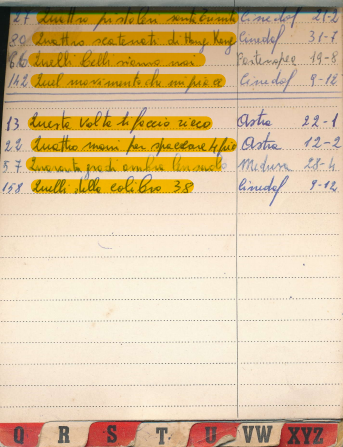 27 Quattro pistole Cinedof 21-2
30 Quattro scatenati di Hong Kong Cinedof 31-7
66 Quelli belli siamo noi Partenopea 19-8
142 Quel movimento che mi piace Cinedof 9-12
13 Questa volta ti faccio ricco Astra 22-1
22 Quattro mani per spaccare Astra 12-2
57 Quaranta gradi all'ombra Medusa 28-4
158 Quelli della calibro 38 Cinedof 9-12
Q R S T U VW XYZ